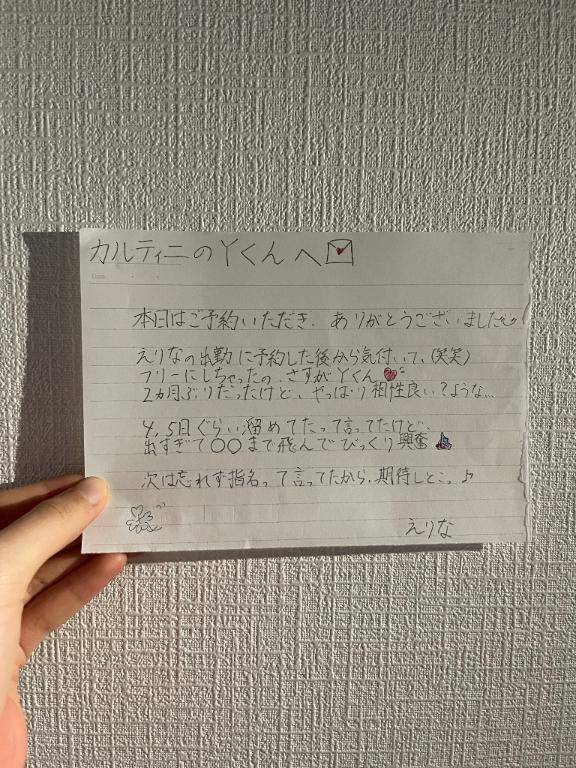 カルティニのYくんへ
本日はご予約いただき、ありがとうございました
えりなの出勤に予約した後から気付いて、(笑笑)
フリーにしちゃったの、さすがYくん
2ヵ月ぶりだったけど、やっぱり相性良い?ような…
4,5日ぐらい溜めてたって言ってたけど、
出すぎて〇〇まで飛んでびっくり興奮
次は忘れず指名って言ってたから、期待しとこっ♪
えりな